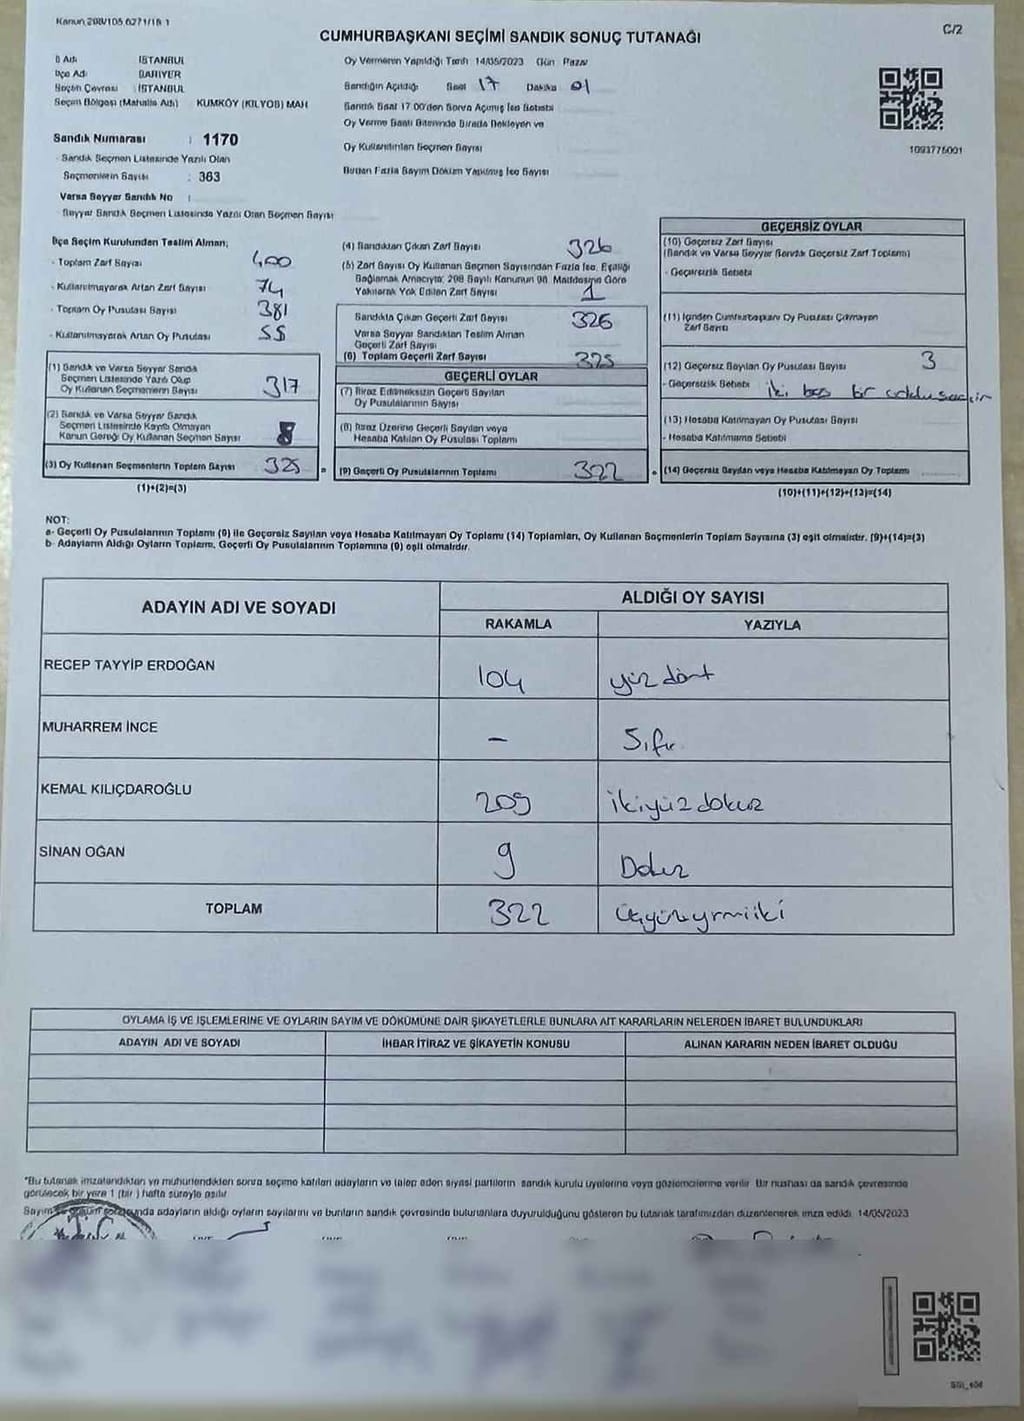 Kanun 298/105 6271/18 1
C/2
CUMHURBAŞKANI SEÇİMİ SANDIK SONUÇ TUTANAĞI
İl Adı : İSTANBUL
İlçe Adı : SARIYER
Seçim Çevresi : İSTANBUL
Seçim Bölgesi (Mahalle Adı) KUMKÖY (KİLYOS) MAH
Oy Vermenin Yapıldığı Tarih 14/05/2023 Gün Pazar
Sandığın Açıldığı Saat 17 Dakika 01
Sandık Saat 17.00'den Sonra Açılmış İse Sebebi
Oy Verme Saati Bitiminde Sırada Bekleyen ve
Oy Kullandırılan Seçmen Sayısı
Birden Fazla Sayım Döküm Yapılmış İse Sayısı
1093775001
Sandık Numarası : 1170
Sandık Seçmen Listesinde Yazılı Olan
Seçmenlerin Sayısı : 363
Varsa Seyyar Sandık No :
Seyyar Sandık Seçmen Listesinde Yazılı Olan Seçmen Sayısı
İlçe Seçim Kurulundan Teslim Alınan;
- Toplam Zarf Sayısı 400
- Kullanılmayarak Artan Zarf Sayısı 74
- Toplam Oy Pusulası Sayısı 381
- Kullanılmayarak Artan Oy Pusulası 55
(1) Sandık ve Varsa Seyyar Sandık
Seçmen Listesinde Yazılı Olup
Oy Kullanan Seçmenlerin Sayısı 317
(2) Sandık ve Varsa Seyyar Sandık
Seçmen Listesinde Kayıtlı Olmayan
Kanun Gereği Oy Kullanan Seçmen Sayısı 8
(3) Oy Kullanan Seçmenlerin Toplam Sayısı 325
(1)+(2)=(3)
(4) Sandıktan Çıkan Zarf Sayısı 326
(5) Zarf Sayısı Oy Kullanan Seçmen Sayısından Fazla İse, Eşitliği
Sağlamak Amacıyla; 298 Sayılı Kanunun 98. Maddesine Göre
Yakılarak Yok Edilen Zarf Sayısı 1
Sandıkta Çıkan Geçerli Zarf Sayısı 326
Varsa Seyyar Sandıktan Teslim Alınan
Geçerli Zarf Sayısı
(6) Toplam Geçerli Zarf Sayısı 325
GEÇERLİ OYLAR
(7) İtiraz Edilmeksizin Geçerli Sayılan
Oy Pusulalarının Sayısı
(8) İtiraz Üzerine Geçerli Sayılan veya
Hesaba Katılan Oy Pusulası Toplamı
= (9) Geçerli Oy Pusulalarının Toplamı 322
GEÇERSİZ OYLAR
(10) Geçersiz Zarf Sayısı
(Sandık ve Varsa Seyyar Sandık Geçersiz Zarf Toplamı)
- Geçersizlik Sebebi
(11) İçinden Cumhurbaşkanı Oy Pusulası Çıkmayan
Zarf Sayısı
(12) Geçersiz Sayılan Oy Pusulası Sayısı 3
- Geçersizlik Sebebi iki boş bir
(13) Hesaba Katılmayan Oy Pusulası Sayısı
- Hesaba Katılmama Sebebi
+ (14) Geçersiz Sayılan veya Hesaba Katılmayan Oy Toplamı
(10)+(11)+(12)+(13)=(14)
NOT:
a- Geçerli Oy Pusulalarının Toplamı (9) ile Geçersiz Sayılan veya Hesaba Katılmayan Oy Toplamı (14) Toplamları, Oy Kullanan Seçmenlerin Toplam Sayısına (3) eşit olmalıdır. (9)+(14)=(3)
b- Adayların Aldığı Oyların Toplamı, Geçerli Oy Pusulalarının Toplamına (9) eşit olmalıdır.
ADAYIN ADI VE SOYADI
ALDIĞI OY SAYISI
RAKAMLA YAZIYLA
RECEP TAYYİP ERDOĞAN 104 yüz dört
MUHARREM İNCE - Sıfır
KEMAL KILIÇDAROĞLU 209 ikiyüz dokuz
SİNAN OĞAN 9 Dokuz
TOPLAM 322 üçyüzyirmiiki
OYLAMA İŞ VE İŞLEMLERİNE VE OYLARIN SAYIM VE DÖKÜMÜNE DAİR ŞİKAYETLERLE BUNLARA AİT KARARLARIN NELERDEN İBARET BULUNDUKLARI
ADAYIN ADI VE SOYADI İHBAR İTİRAZ VE ŞİKAYETİN KONUSU ALINAN KARARIN NEDEN İBARET OLDUĞU
*Bu tutanak imzalandıktan ve mühürlendikten sonra seçime katılan adayların ve talep eden siyasi partilerin sandık kurulu üyelerine veya gözlemcilerine verilir. Bir nushası da sandık çevresinde
görülecek bir yere 1 (bir ) hafta süreyle asılır
Sayım ve döküm sonucunda adayların aldığı oyların sayılarını ve bunların sandık çevresinde bulunanlara duyurulduğunu gösteren bu tutanak tarafımızdan düzenlenerek imza edildi. 14/05/2023
T.C.